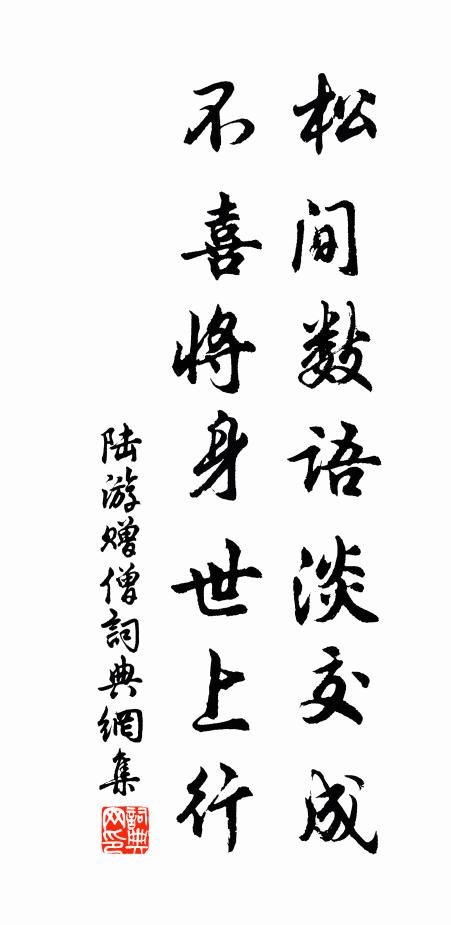 松间数语淡交成
不喜將身世上行
陆游赠僧詞典網集
詞典
网印